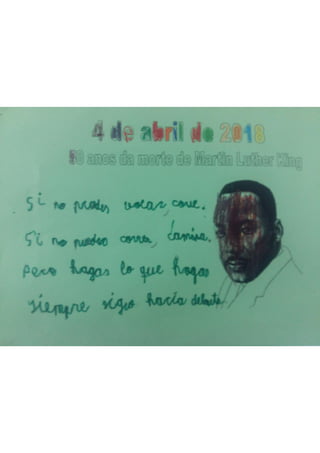 4 de abril de 2018
50 anos da morte de Martin Luther King
Si no puedes volar, corre.
Si no puedes correr, camina.
Pero hagas lo que hagas
siempre sigue hacía delante